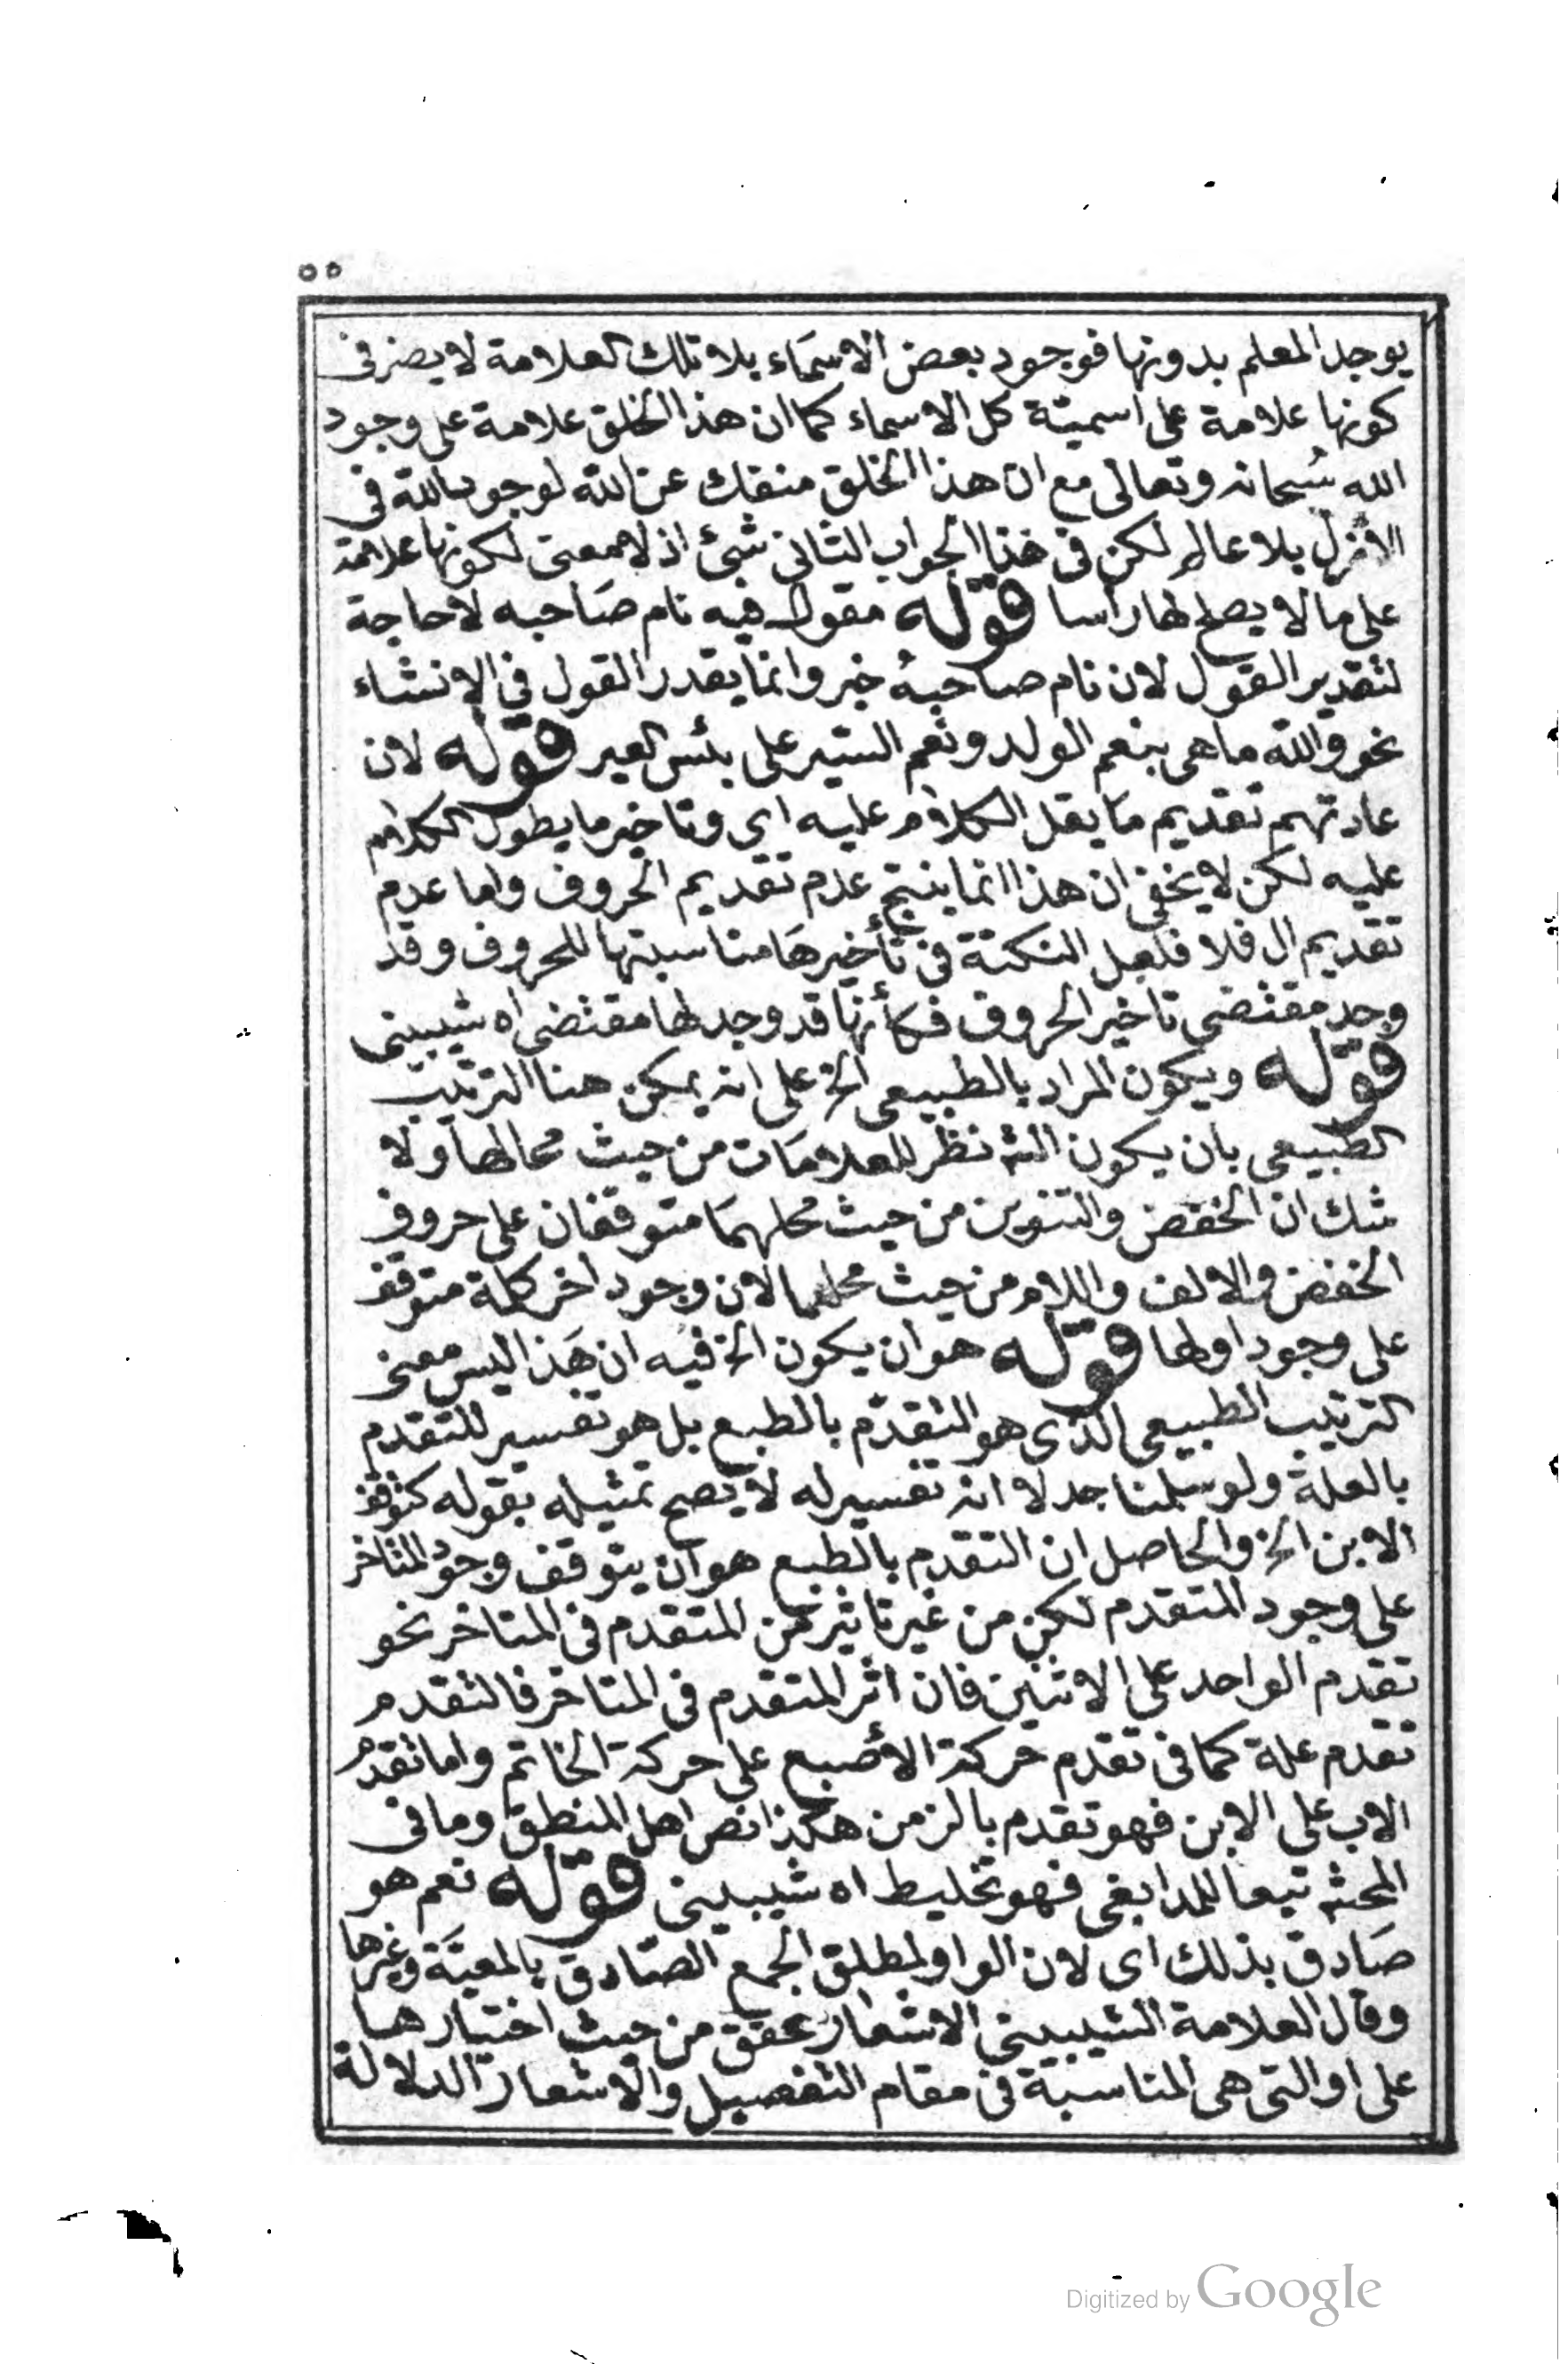 ٥٥
يوجد المعلم بدونها فوجود بعض الاسماء بلا تلك العلامة لا يضر فى
كونها علامة على اسمية كل الاسماء كما ان هذا الخلق علامة على وجود
الله سُبحانه وتعالى مع ان هذا الخلق منفك عن الله لوجود الله فى
الازل بلا عالم لكن فى هذا الجواب الثانى شئ اذ لا معنى لكونها علامة
على ما لا يصلح لها راسا قوله مقول فيه نام صاحبه لا حاجة
لتقدير القول لان نام صاحبهُ خبر وانما يقدر القول فى الانشاء
نحو والله ما هى بنعم الولد ونعم السير على بئس العير قوله لان
عادتهم تقديم ما يقل الكلام عليه اى وتاخير ما يطول الكلام
عليه لكن لا يخفى ان هذا انما ينتج عدم تقديم الحروف واما عدم
تقديم ال فلا فلعل النكتة فى تأخيرها مناسبتها للحروف وقد
وجد مقتضى تاخير الحروف فكأنها قد وجد لها مقتضى اه شيبينى
قوله ويكون المراد بالطبيعى الخ على انه يمكن هنا الترتيب
الطبيعى بان يكون الش نظر للعلامات من حيث محالها ولا
شك ان الخفض والتنوين من حيث محلهما متوقفان على حروف
الخفض والالف واللام من حيث محلهما لان وجود اخر كلمة متوقف
على وجود اولها قوله هو ان يكون الخ فيه ان هَذا ليس معنى
الترتيب الطبيعى الذى هو التقدّم بالطبع بل هو تفسير للتقدم
بالعلة ولو سلمنا جدلا انه تفسير له لا يصح تمثيله بقوله كتوقف
الابن الخ والحاصل ان التقدم بالطبع هو ان يتوقف وجود المتاخر
على وجود المتقدم لكن من غير تاثير من المتقدم فى المتاخر نحو
تقدم الواحد على الاثنين فان اثر المتقدم فى المتاخر فالتقدم
تقدم علة كما فى تقدم حركة الأصبع على حركة الخاتم واما تقدم
الاب على الابن فهو تقدم بالزمن هكذا نص اهل المنطق وما فى
المحشى تبعا للمدابغى فهو تخليط اه شيبينى قوله نعم هو
صَادق بذلك اى لان الواو لمطلق الجمع الصّادق بالمعيّة وغيرها
وقال العلامة الشيبينى الاشعار محقق من حيث اختيارها
على او التى هى المناسبة فى مقام التفصيل والاشعار الدلالة
Digitized by Google